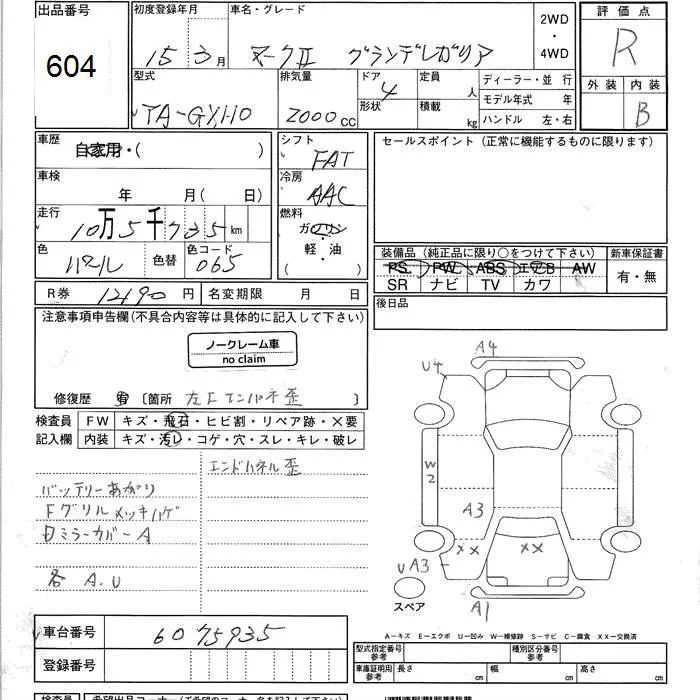 出品番号
604
初度登録年月
15 3月
車名・グレード
マークⅡ グランデレガリア
2WD
・
4WD
評価点
R
外装 内装
B
型式
TA-GX110
排気量
2000cc
ドア
4
形状
定員
人
積載
kg
ディーラー・並行
モデル年式 年
ハンドル 左・右
車歴
自家用・( )
シフト
FAT
セールスポイント(正常に機能するものに限ります)
車検
年 月(日)
冷房
AAC
走行
10万5千735km
燃料
ガソリン
軽・油
( )
色
パール
色替
色コード
065
装備品(純正品に限り○をつけて下さい)
新車保証書
PS PW ABS エアB AW
SR ナビ TV カワ
有・無
R券 12190円
名変期限 月 日
後日品
注意事項申告欄(不具合内容等は具体的に記入して下さい)
ノークレーム車
no claim
修復歴 有 〔箇所 左Fエンパネ歪 〕
検査員
記入欄
FW キズ・飛石・ヒビ割・リペア跡・×要
内装 キズ・汚レ・コゲ・穴・スレ・キレ・破レ
エンドパネル歪
バッテリーあがり
Fグリルメッキハゲ
ミラーカバーA
各 A.U
A4
U4
W2
A3
××
××
UA3
A1
スペア
A-キズ E-エクボ U-凹み W-補修跡 S-サビ C-腐食 XX-交換済
車台番号
6075935
登録番号
型式指定番号
参考
種別区分番号
参考
車庫証明用
参考
長さ cm
幅 cm
高さ cm
検査員
希望出品コーナー(ご希望のコーナー名を記入して下さい)